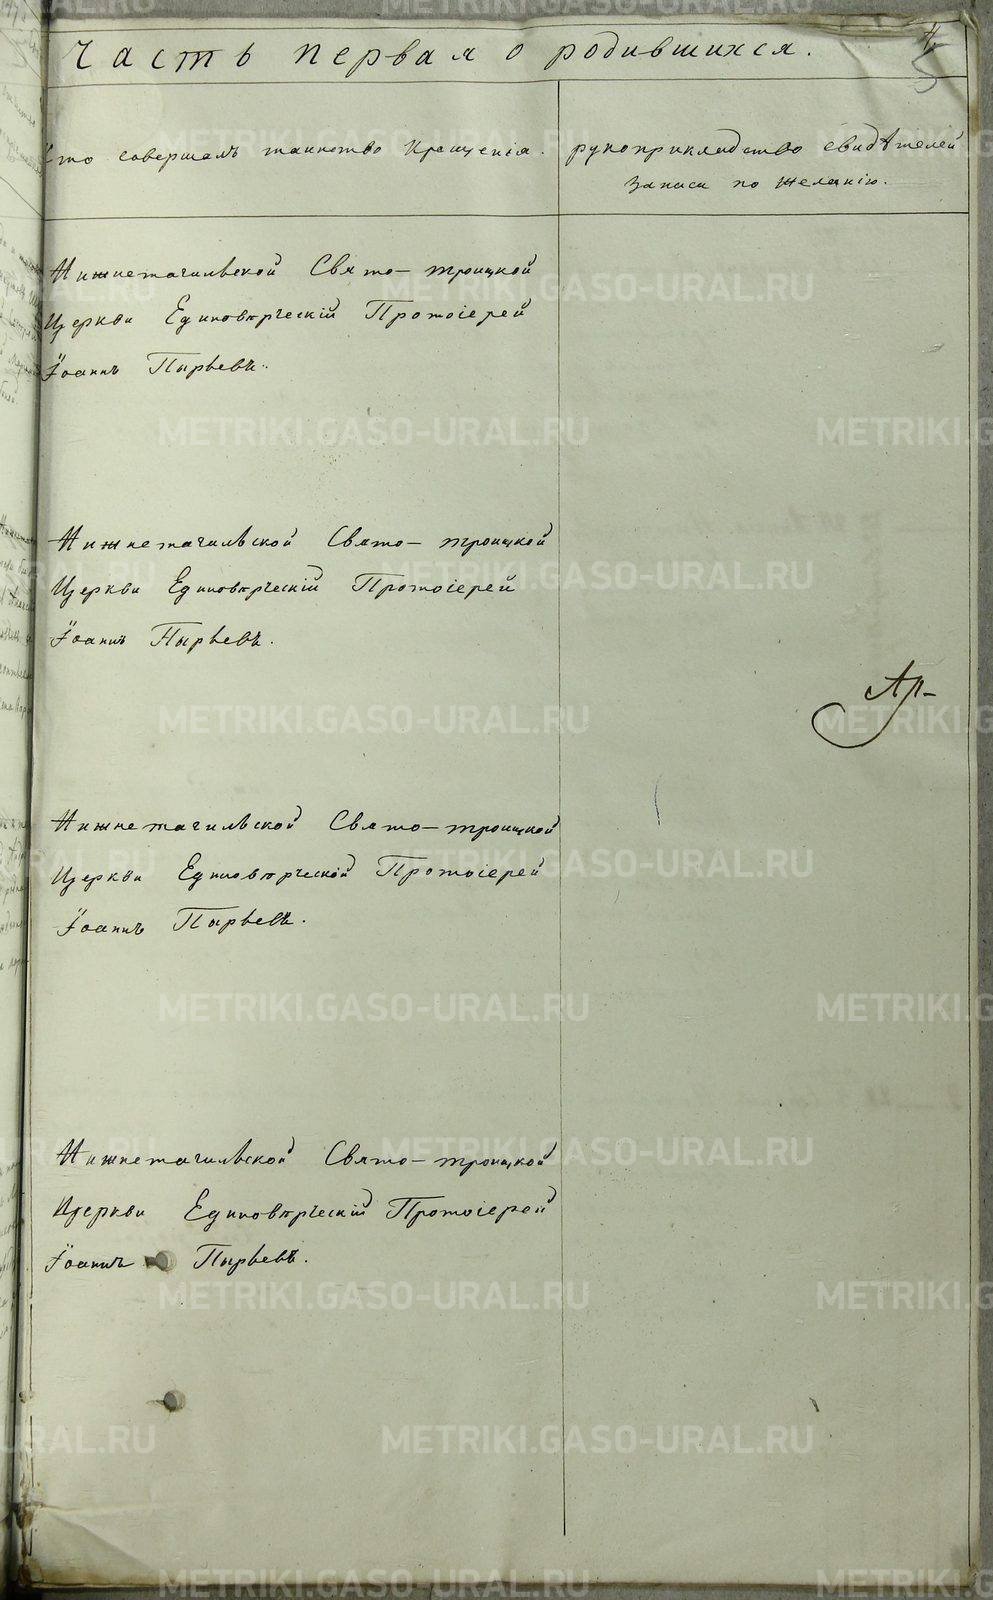 Часть первая о родившихся.
5
Кто совершалъ таинство Крещенія.
рукоприкладство свидѣтелей
записи по желанію.
Нижнетагильской Свято-троицкой
Церкви Единовѣрческій Протоіерей
Іоаннъ Пырьевъ.
Нижнетагильской Свято-троицкой
Церкви Единовѣрческій Протоіерей
Іоаннъ Пырьевъ.
Ар-
Нижнетагильской Свято-троицкой
Церкви Единовѣрческой Протоіерей
Іоаннъ Пырьевъ.
Нижнетагильской Свято-троицкой
Церкви Единовѣрческій Протоіерей
Іоаннъ Пырьевъ.
METRIKI.GASO-URAL.RU